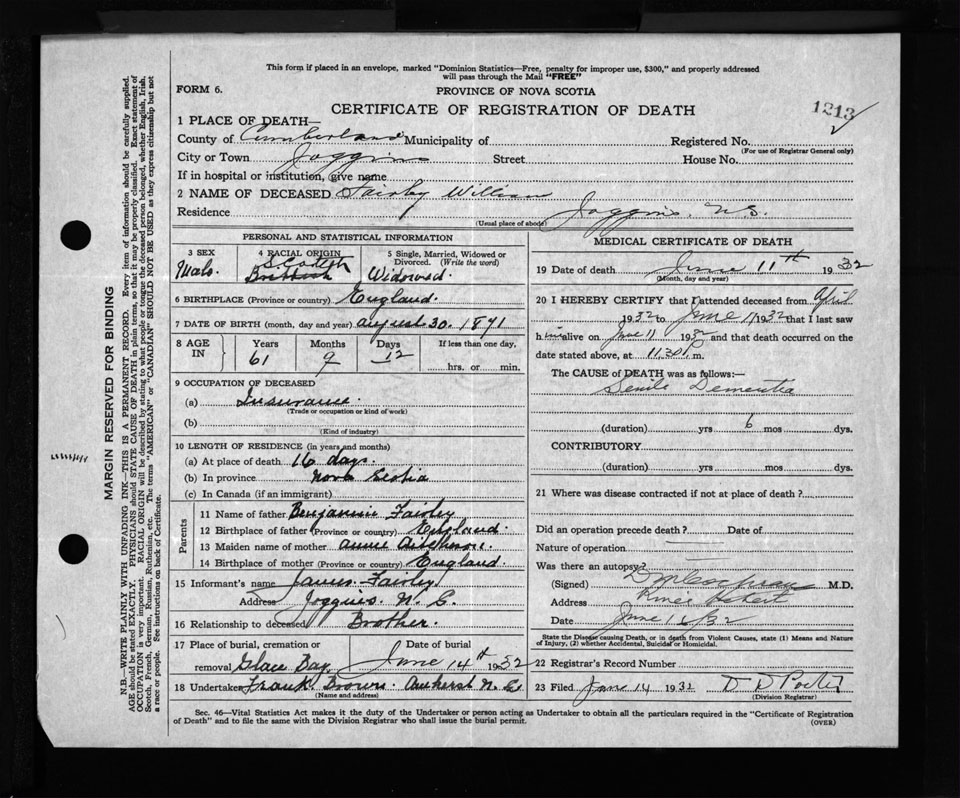 This form if placed in an envelope, marked "Dominion Statistics—Free, penalty for improper use, $300," and properly addressed
will pass through the Mail "FREE"
FORM 6.
PROVINCE OF NOVA SCOTIA
CERTIFICATE OF REGISTRATION OF DEATH
1213
1 PLACE OF DEATH—
County of Cumberland Municipality of Registered No.
(For use of Registrar General only)
City or Town Joggins Street House No.
If in hospital or institution, give name
2 NAME OF DECEASED Fairley William
Residence Joggins, N.S.
(Usual place of abode)
PERSONAL AND STATISTICAL INFORMATION
3 SEX 4 RACIAL ORIGIN 5 Single, Married, Widowed or Divorced. (Write the word)
Male. Scottish Widowed.
6 BIRTHPLACE (Province or country) England.
7 DATE OF BIRTH (month, day and year) August 30. 1871
8 AGE IN Years Months Days If less than one day,
61 9 12 hrs. or min.
9 OCCUPATION OF DECEASED
(a) Insurance.
(Trade or occupation or kind of work)
(b)
(Kind of industry)
10 LENGTH OF RESIDENCE (in years and months)
(a) At place of death 16 days.
(b) In province Nova Scotia
(c) In Canada (if an immigrant)
Parents
11 Name of father Benjamin Fairley
12 Birthplace of father (Province or country) England.
13 Maiden name of mother Annie
14 Birthplace of mother (Province or country) England.
15 Informant's name James Fairley
Address Joggins. N. S.
16 Relationship to deceased Brother.
17 Place of burial, cremation or removal Date of burial
Glace Bay June 14th 1932
18 Undertaker Frank Brown. Amherst N. S.
(Name and address)
MEDICAL CERTIFICATE OF DEATH
19 Date of death June 11th 1932
(Month, day and year)
20 I HEREBY CERTIFY that I attended deceased from April
1932 to June 11 1932 that I last saw
him alive on June 11 1932 and that death occurred on the
date stated above, at 11.30 m.
The CAUSE of DEATH was as follows:—
Senile Dementia
(duration) yrs 6 mos dys.
CONTRIBUTORY
(duration) yrs. mos. dys.
21 Where was disease contracted if not at place of death?
Did an operation precede death? Date of
Nature of operation
Was there an autopsy?
(Signed) Cochran M.D.
Address River Hebert
Date June 16/32
State the Disease causing Death, or in death from Violent Causes, state (1) Means and Nature
of Injury, (2) whether Accidental, Suicidal or Homicidal.
22 Registrar's Record Number
23 Filed June 14 1932 D D Porter
(Division Registrar)
Sec. 46—Vital Statistics Act makes it the duty of the Undertaker or person acting as Undertaker to obtain all the particulars required in the "Certificate of Registration
of Death" and to file the same with the Division Registrar who shall issue the burial permit.
(OVER)
MARGIN RESERVED FOR BINDING
N.B.—WRITE PLAINLY WITH UNFADING INK—THIS IS A PERMANENT RECORD. Every item of information should be carefully supplied.
AGE should be stated EXACTLY. PHYSICIANS should STATE CAUSE OF DEATH in plain terms, so that it may be properly classified. Exact statement of
OCCUPATION is very important. RACIAL ORIGIN will be described by stating to what people or tongue the deceased person belonged, whether English, Irish,
Scotch, French, German, Russian, Ruthenian, etc. The terms "AMERICAN" or "CANADIAN" SHOULD NOT BE USED as they express citizenship but not
a race or people. See instructions on back of Certificate.